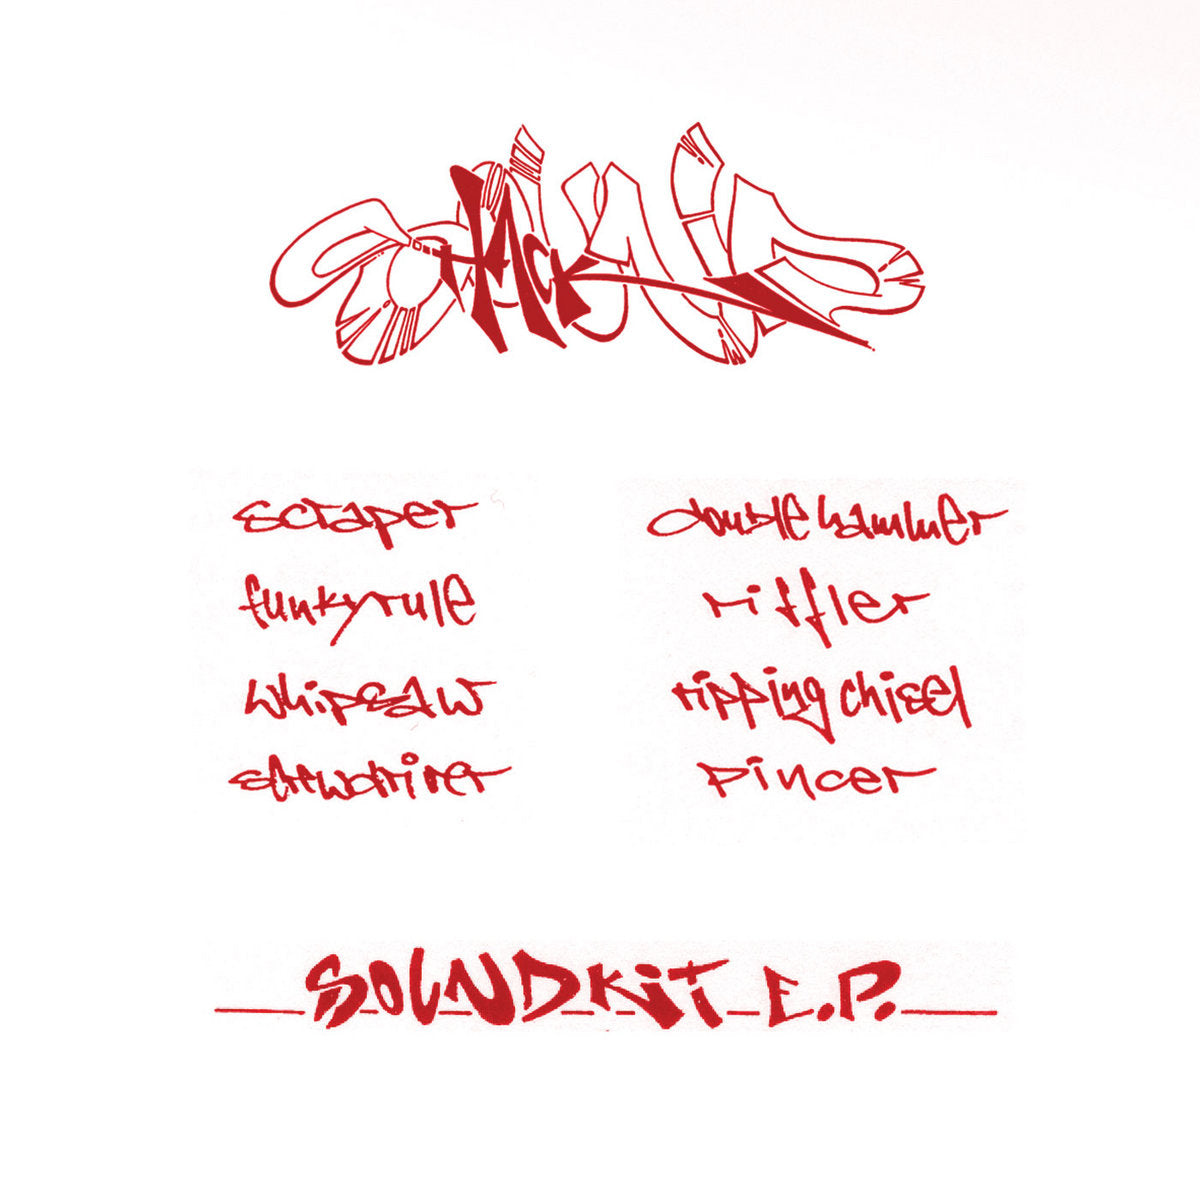 SOUND
HACK
scraper
funkyrule
whipsaw
screwdriver
double hammer
riffler
ripping chisel
pincer
SOUNDKIT E.P.